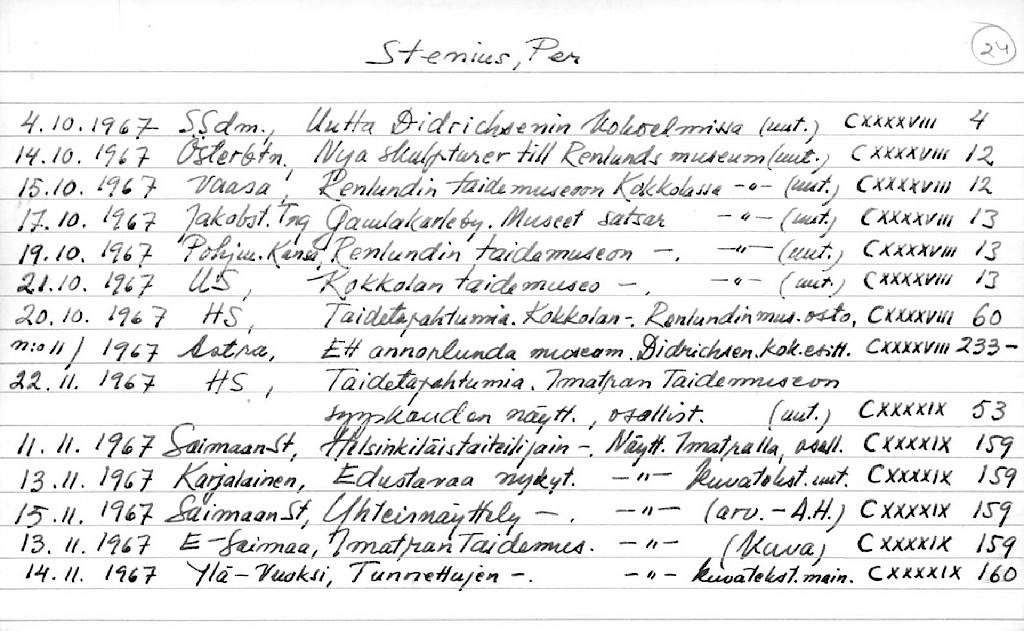 Stenius, Per 24
4.10.1967 S.Sdm., Uutta Didrichsenin kokoelmissa (uut.) CXXXXVIII 4
14.10.1967 Österbtn. Nya skulpturer till Renlunds museum (uut.) CXXXXVIII 12
15.10.1967 Vaasa, Renlundin taidemuseoon Kokkolassa -"- (uut.) CXXXXVIII 12
17.10.1967 Jakobst. Tng Gamlakarleby. Museet satsar -"- (uut.) CXXXXVIII 13
19.10.1967 Pohjm. Kansa, Renlundin taidemuseon -. -"- (uut.) CXXXXVIII 13
21.10.1967 US, Kokkolan taidemuseo -. -"- (uut.) CXXXXVIII 13
20.10.1967 HS, Taidetapahtumia. Kokkolan -. Renlundin mus. osto, CXXXXVIII 60
n:o 11/1967 Astra, Ett annorlunda museum. Didrichsen. kok. esitt. CXXXXVIII 233-
22.11.1967 HS, Taidetapahtumia. Imatran Taidemuseon
syyskauden näytt., osallist. (uut.) CXXXXIX 53
11.11.1967 SaimaanSt, Helsinkiläistaiteilijain -. Näytt. Imatralla, osall. CXXXXIX 159
13.11.1967 Karjalainen, Edustavaa nykyt. -"- kuvatekst. uut. CXXXXIX 159
15.11.1967 SaimaanSt, Yhteisnäyttely -. -"- (arv. - A.H.) CXXXXIX 159
13.11.1967 E-Saimaa, Imatran Taidemus. -"- (Kuva) CXXXXIX 159
14.11.1967 Ylä-Vuoksi, Tunnettujen -. -"- kuvatekst. main. CXXXXIX 160